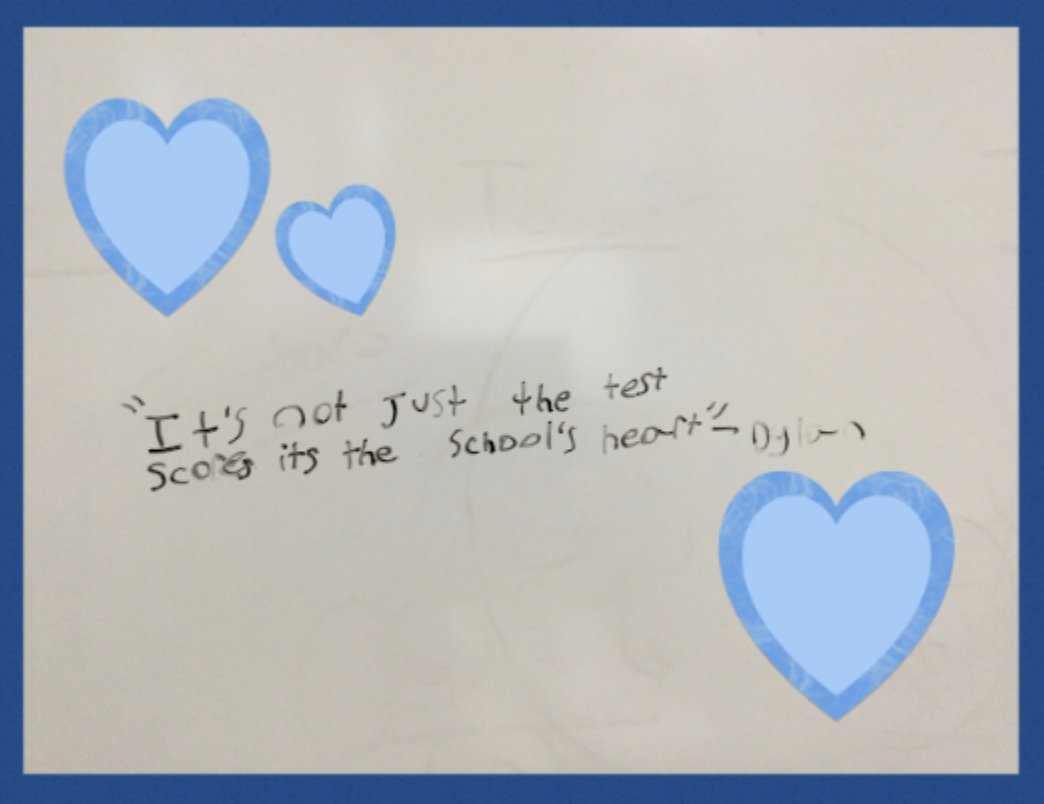 "It's not just the test
scores its the school's heart" - Dylan